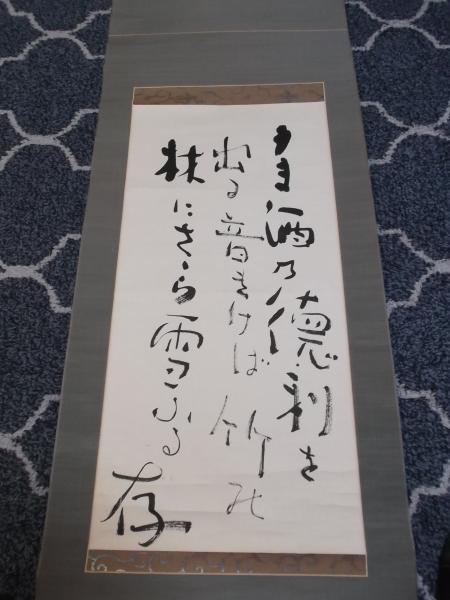 うま酒乃徳利を
出る音きけば 竹の
林にさら雪ふる
存